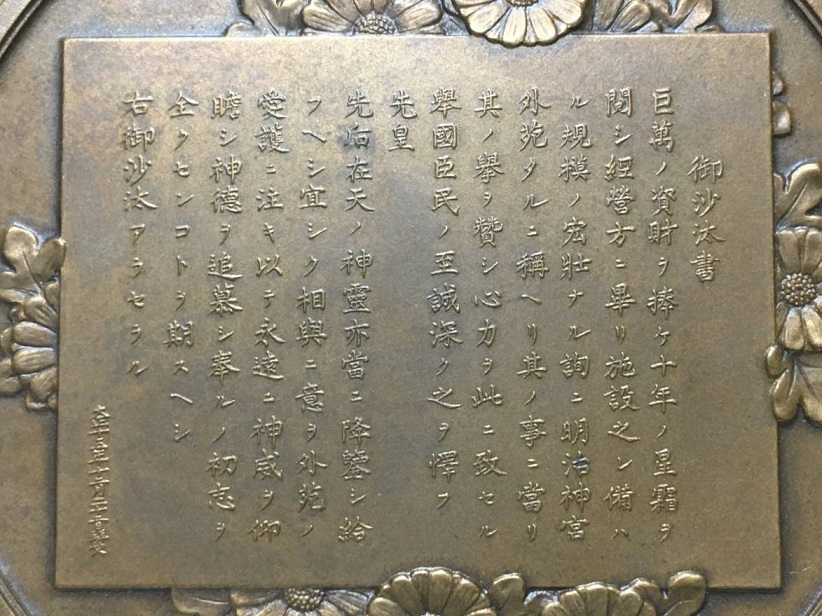 御沙汰書
巨萬ノ資財ヲ捧ケ十年ノ星霜ヲ
閲シ經營方ニ畢リ施設之レ備ハ
ル規模ノ宏壯ナル詢ニ明治神宮
外苑タルニ稱ヘリ其ノ事ニ當リ
其ノ擧ヲ贊シ心力ヲ此ニ致セル
擧國臣民ノ至誠深ク之ヲ懌フ
先皇
先后在天ノ神靈亦當ニ降鑒シ給
フヘシ宜シク相與ニ意ヲ外苑ノ
愛護ニ注キ以テ永遠ニ神威ヲ仰
瞻シ神德ヲ追慕シ奉ルノ初志ヲ
全クセンコトヲ期スヘシ
右御沙汰アラセラル